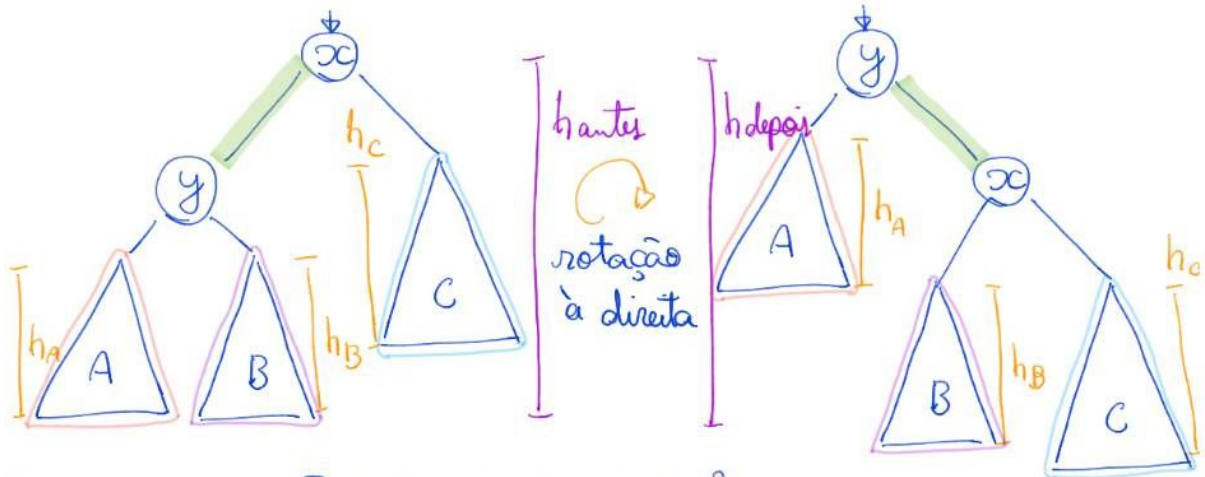 x
y
h_C
h_A
A
B
h_B
C
hantes
rotação
à direita
hdepois
y
A
h_A
x
B
h_B
C